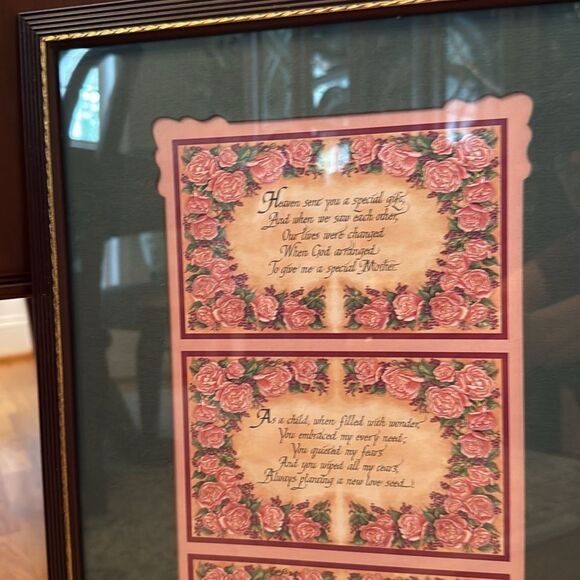 Heaven sent you a special gift,
And when we saw each other,
Our lives were changed
When God arranged
To give me a special Mother.
As a child, when filled with wonder,
You embraced my every need;
You quieted my fears
And you wiped all my tears,
Always planting a new love seed.